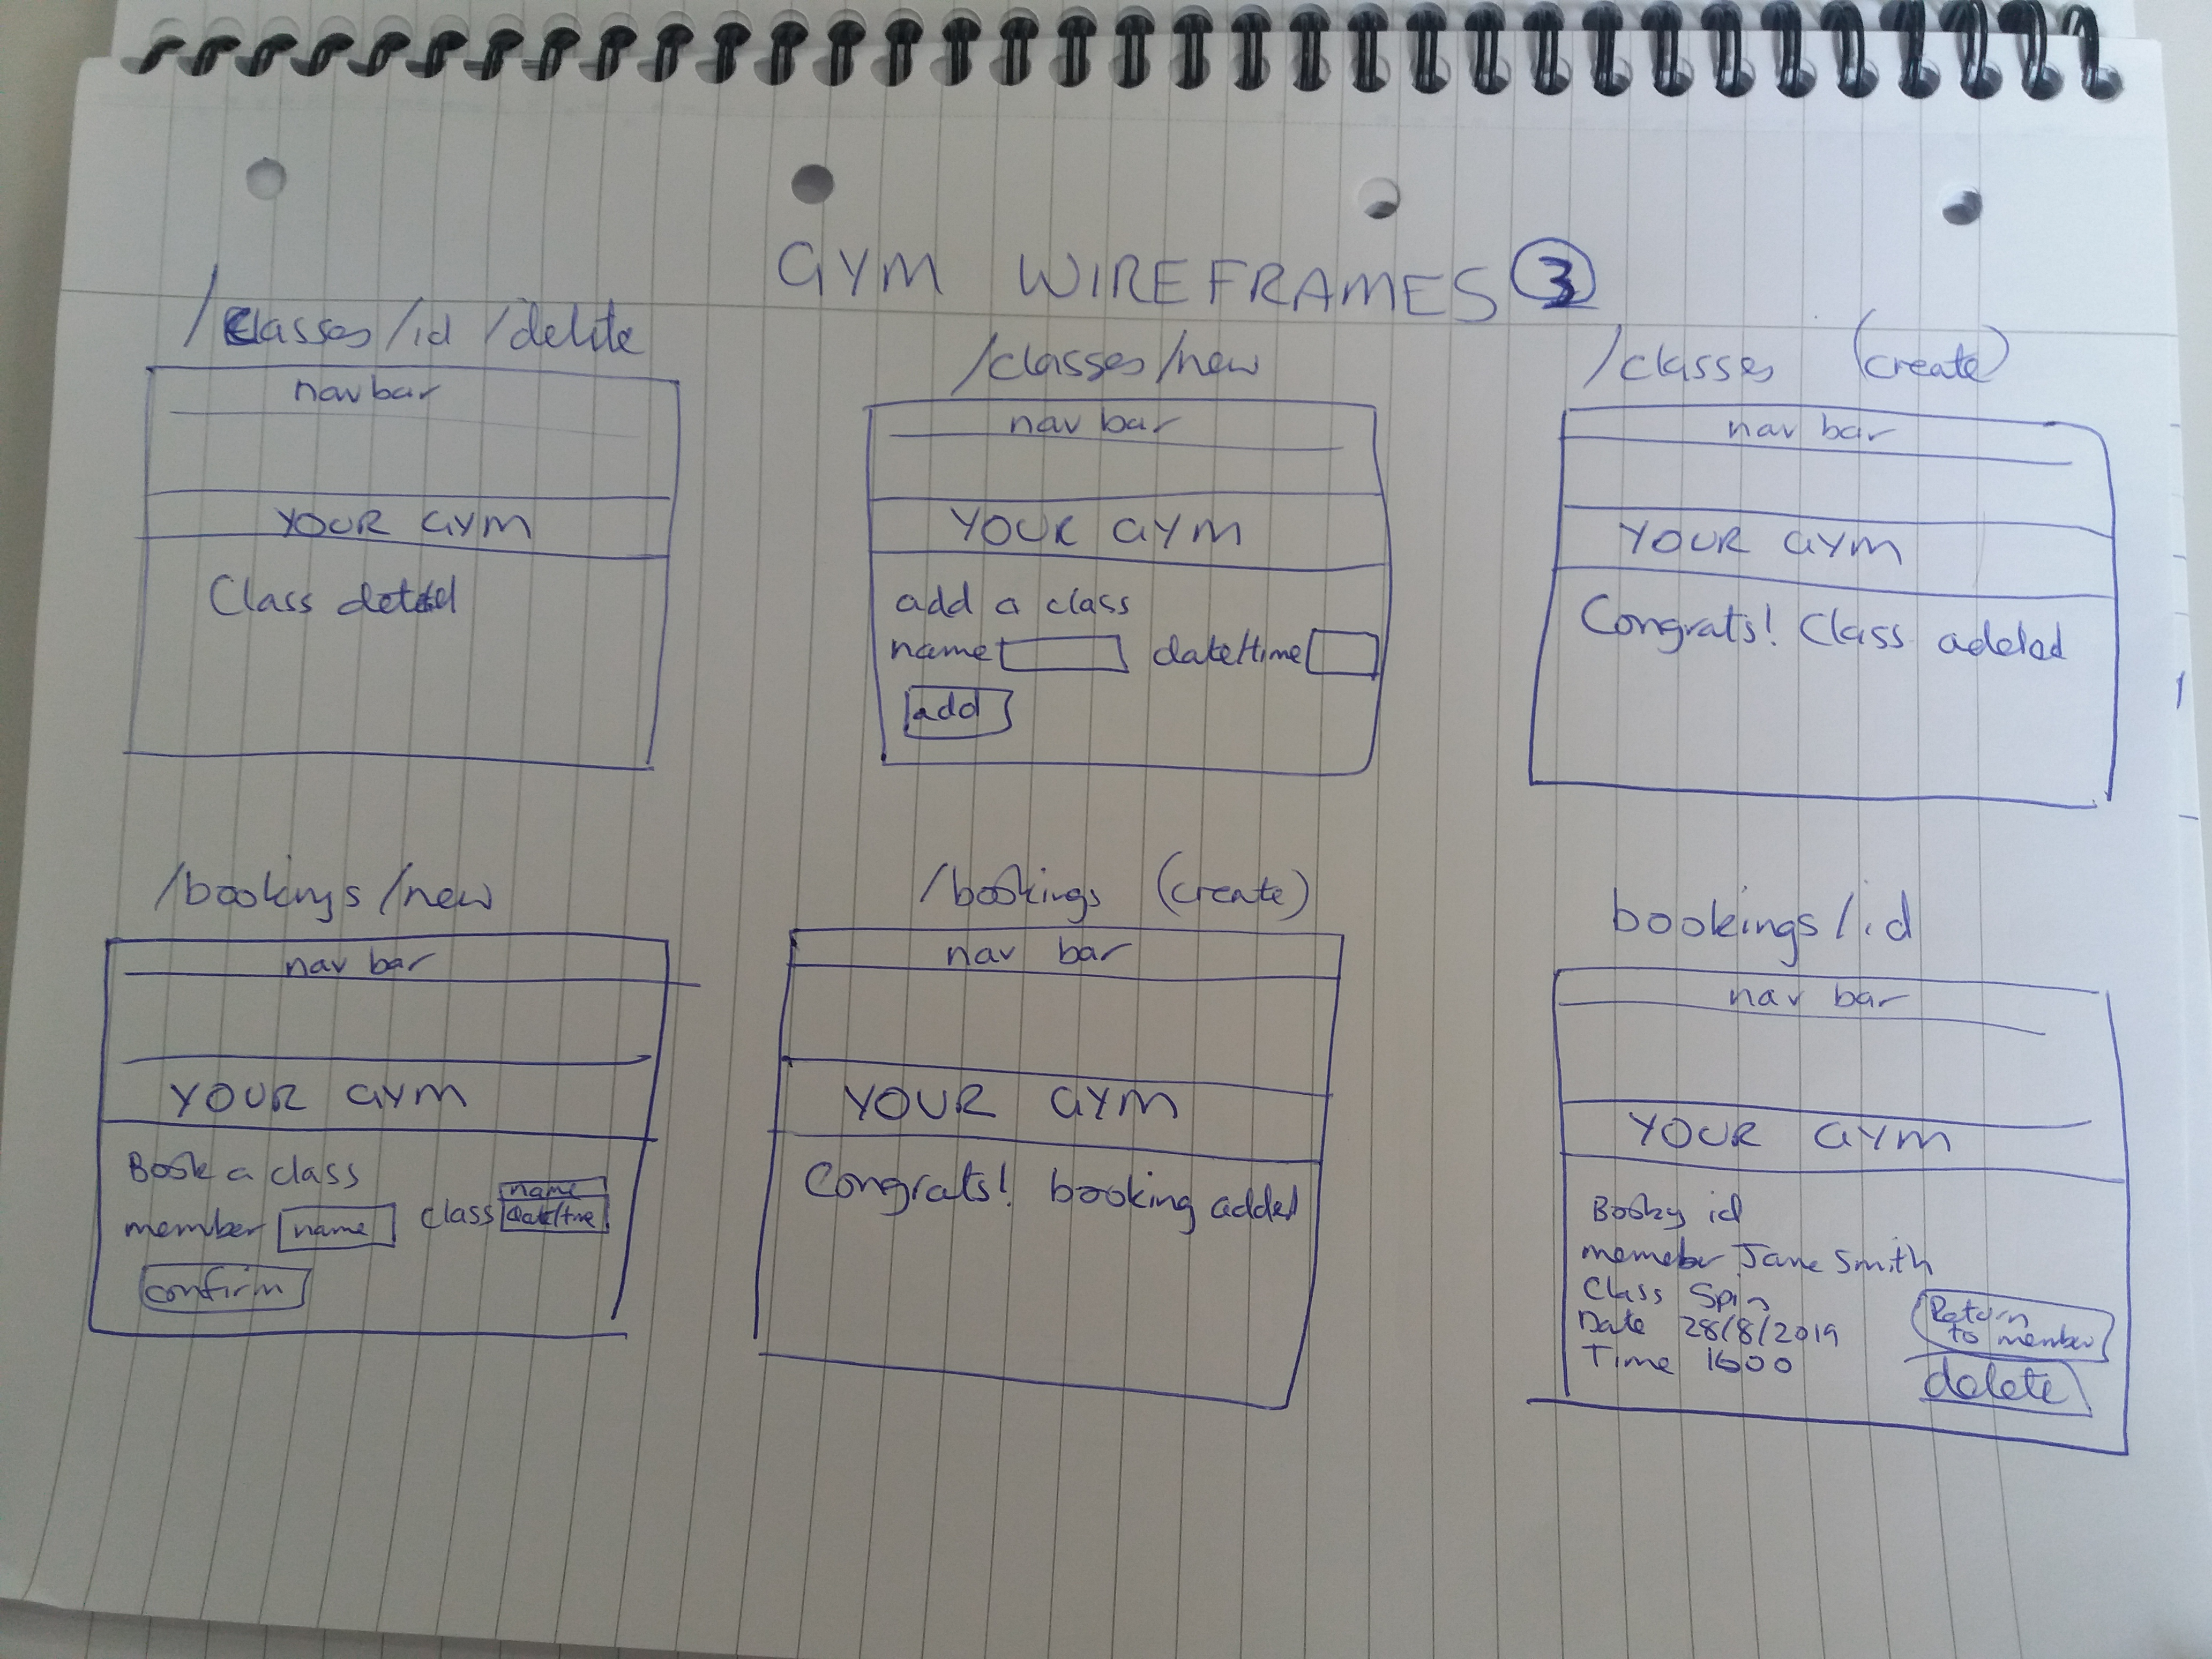 GYM WIREFRAMES 3
/classes/id/delete
nav bar
YOUR GYM
Class
/classes/new
nav bar
YOUR GYM
add a class
name date/time
add
/classes (create)
nav bar
YOUR GYM
Congrats! Class added
/bookings/new
nav bar
YOUR GYM
Book a class
member name class name
date/time
confirm
/bookings (create)
nav bar
YOUR GYM
Congrats! booking added
bookings/id
nav bar
YOUR GYM
id
memeber Jane Smith
Class Spin
Date 28/8/2019
Time 1600
Return
to member
delete